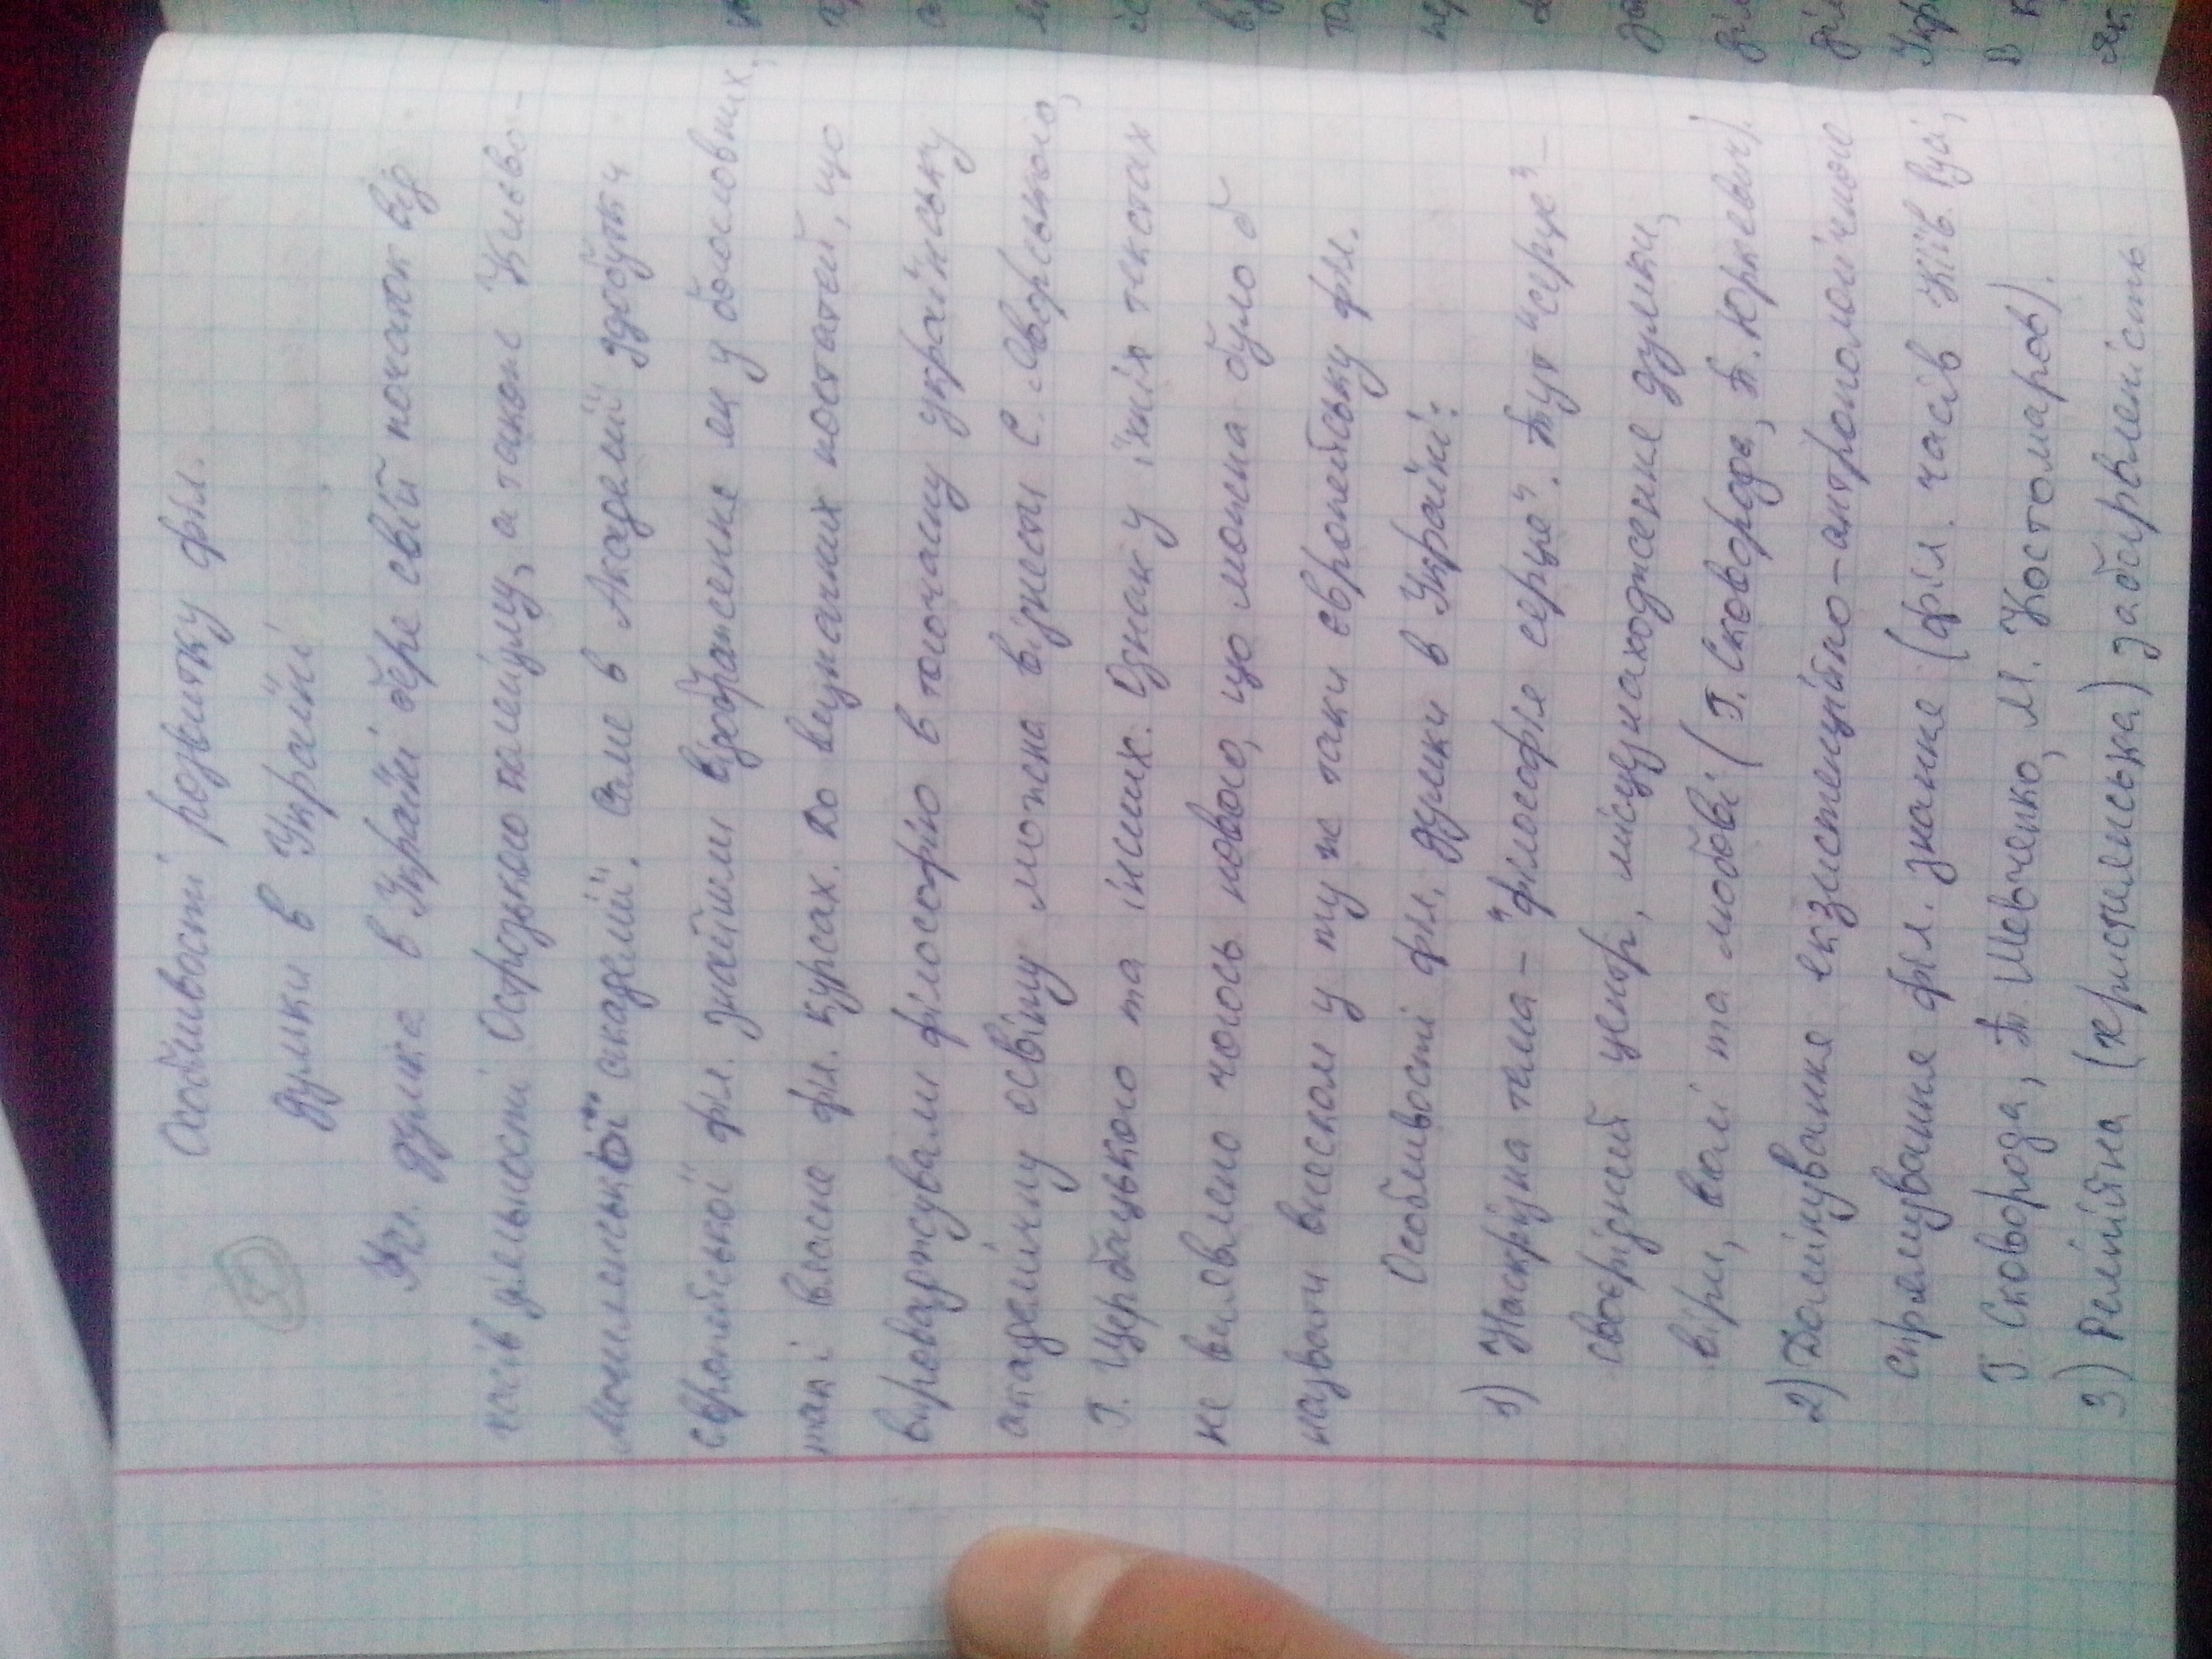 Особливості розвитку філ.
50
думки в Україні
Філ. думка в Україні бере свій початок від
часів діяльності Острозького колегіуму, а також Києво-
Могилянської академії. Саме в Академії здобутки
європейської філ. знайшли відображення як у богословних,
так і власне філ. курсах. До визначних постатей, що
впроваджували філософію в тогочасну українську
академічну освіту можна віднести С. Яворського,
Г. Щербацького та інших. Однак у їхніх текстах
не виявлено чогось нового, що можна було б
назвати внеском у ту ж таки європейську філ.
Особливості філ. думки в Україні:
1) Наскрізна тема - "філософія серця". Тут "серце" -
своєрідний центр, місцезнаходження думки,
віри, волі та любові (Г. Сковорода, П. Юркевич).
2) Домінування екзистенційно-антропологічного
спрямування філ. знання (філ. часів Київ. Русі,
Г. Сковорода, Т. Шевченко, М. Костомаров).
3) Релігійна (християнська) забарвленість